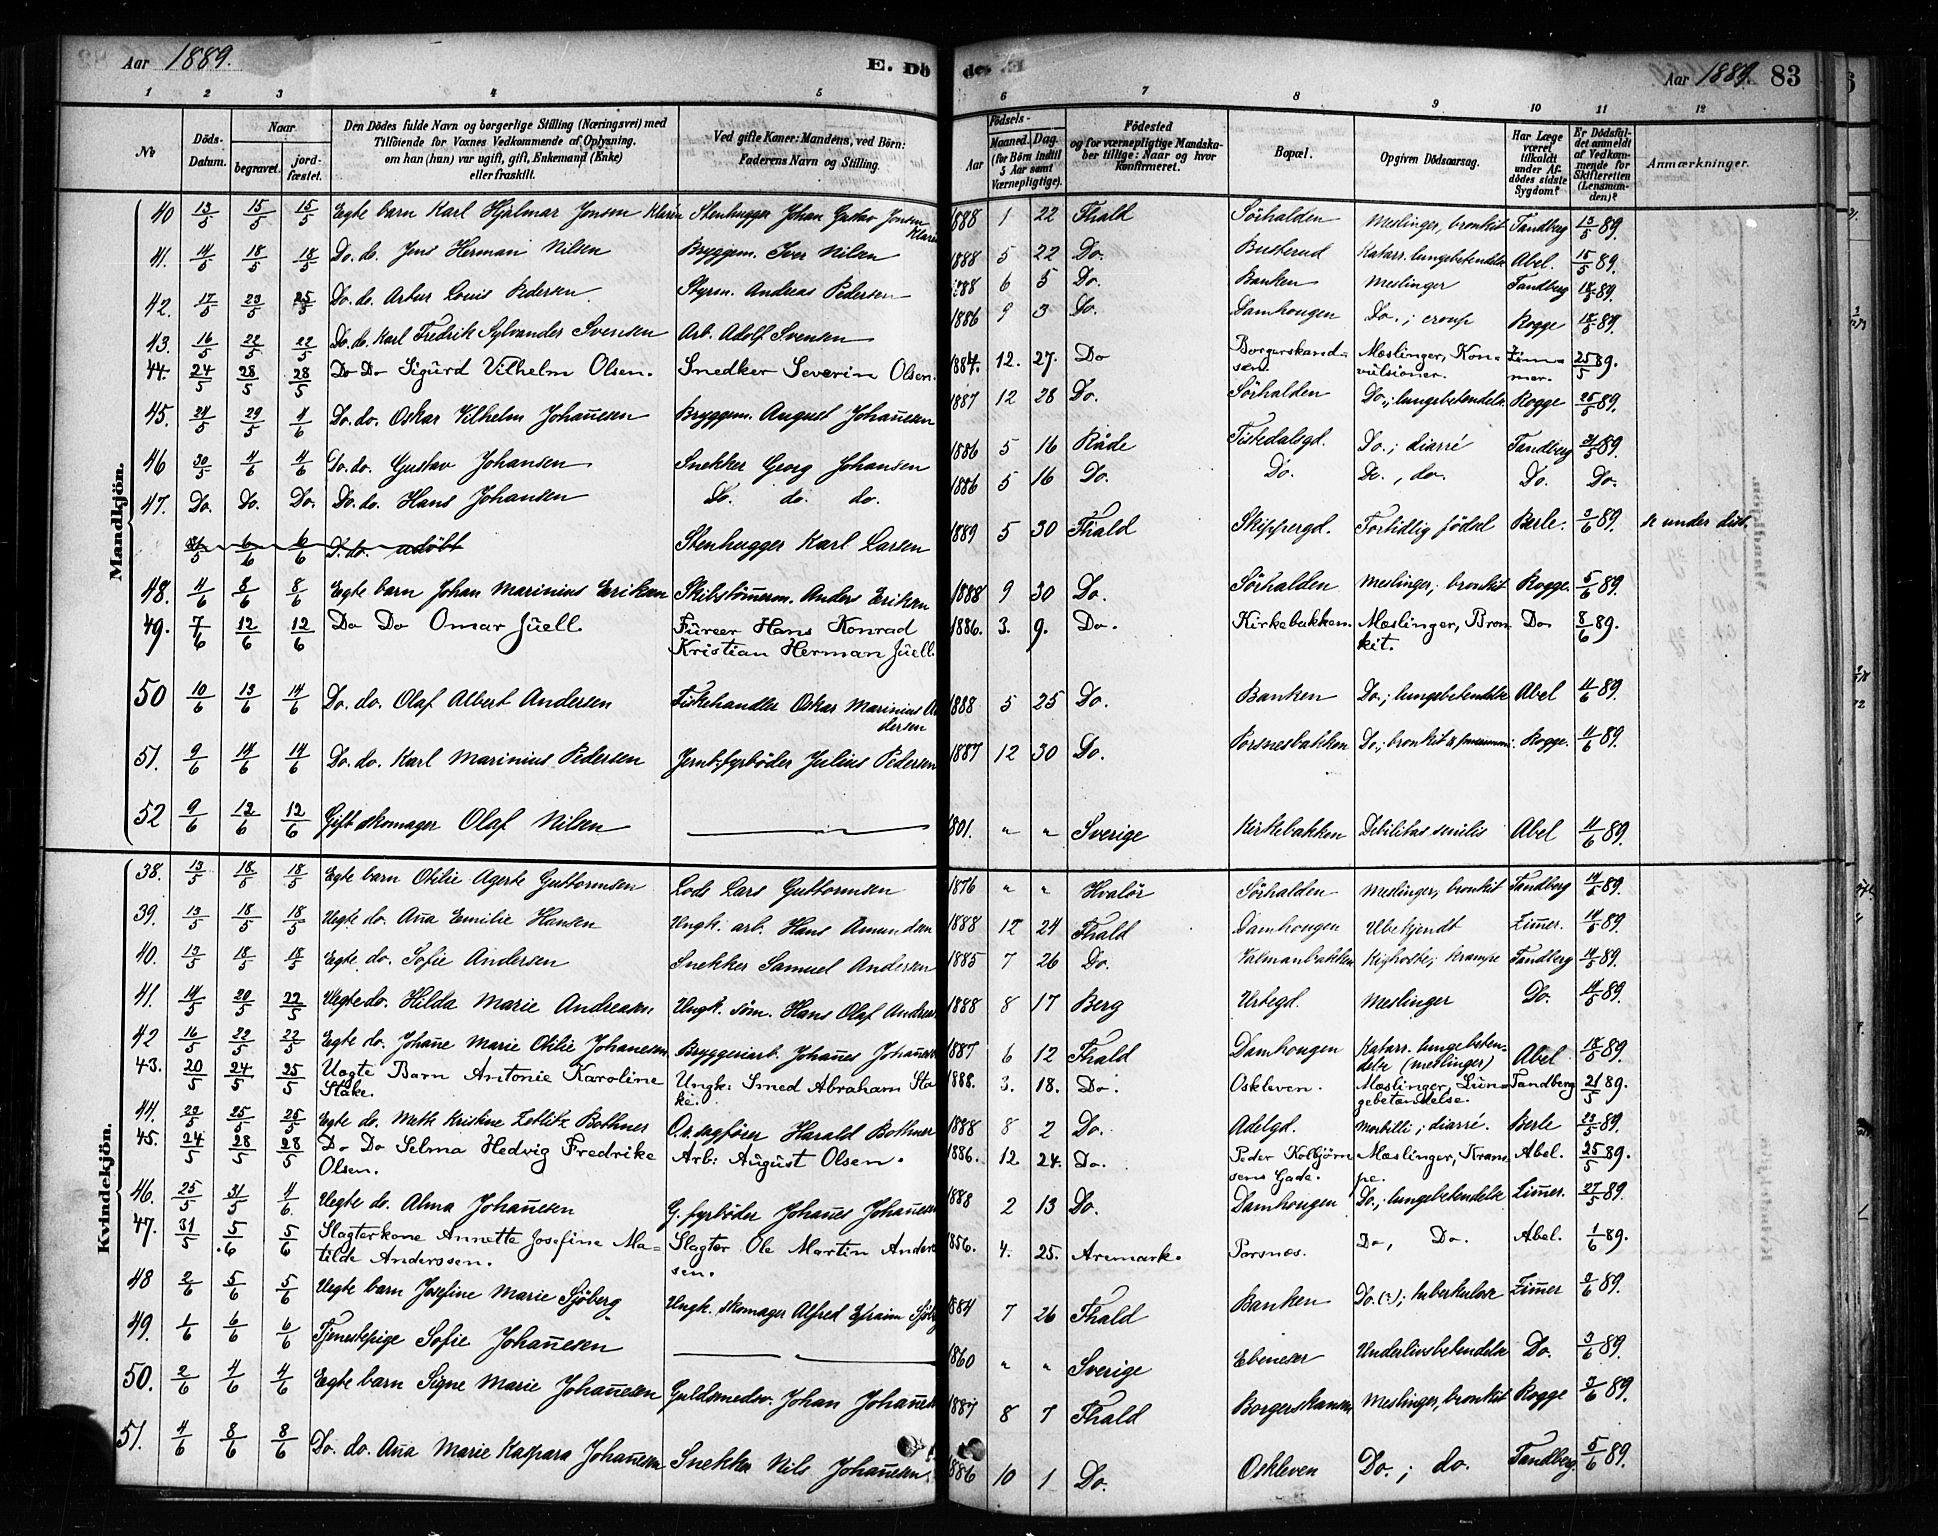 Aar 1889. E. Dö de. Aar 1889. 83
1 2 3 4 5 6 7 8 9 10 11 12
No Döds-Datum. Naar begravet. jordfæstet. Den Dödes fulde Navn og borgerlige Stilling (Næringsvei) med Tilföiende for Voxnes Vedkommende af Oplysning, om han (hun) var ugift, gift, Enkemand (Enke) eller fraskilt. Ved gifte Koner: Mandens, ved Börn: Faderens Navn og Stilling. Födsels- Aar Maaned. Dag. (for Börn indtil 5 Aar samt Værnepligtige). Födested og for værnepligtige Mandskaber tillige: Naar og hvor Konfirmeret. Bopæl. Opgiven Dödsaarsag. Har Læge været tilkaldt under Afdödes sidste Sygdom? Er Dödsfaldet anmeldt af Vedkommende for Skifteretten (Lensmanden)? Anmærkninger.
Mandkjön.
40 13/5 15/5 15/5 Egte barn Karl Hjalmar Jonsen Klarin Stenhugger Johan Gustav Jonsen Klarin 1888 1 22 Fhald Sörhalden Meslinger, bronkit Tandberg 13/5 89.
41. 14/5 18/5 18/5 Do. do. Jens Herman Nilsen Bryggem. Iver Nilsen 1888 5 22 Do. Buskerud Katarr. lungebetendelse Abel. 15/5 89.
42. 17/5 23/5 25/5 Do. do. Artur Louis Pedersen Styrm. Andreas Pedersen 1888 6 5 Do. Banken Meslinger Tandberg 18/5 89.
43. 16/5 22/5 22/5 Do. do. Karl Fredrik Sylvander Svensen Arb. Adolf Svensen 1886 9 3 Do. Damhougen Do.; croup Rogge 18/5 89.
44. 24/5 28/5 28/5 Do Do Sigurd Vilhelm Olsen. Snedker Severin Olsen. 1884. 12. 27. Do Borgerskandsen. Mæslinger, Konvulsioner. Zimmer. 25/5 89.
45. 24/5 29/5 4/6 Do. do. Oskar Vilhelm Johan̄esen Bryggem. August Johan̄esen 1887 12 28 Do. Sörhalden Do.; lungebetendelse Rogge 25/5 89.
46 30/5 4/6 4/6 Do. do. Gustav Johansen Snekker Georg Johansen 1886 5 16 Råde Fiskedalsgd. Do.; diarré Tandberg 31/5 89.
47. Do. Do. Do. Do. do. Hans Johansen Do. do. do. 1886 5 16 Do. Do. Do., do. Do. Do.
31/5 6/6 6/6 D. do. udöbt Stenhugger Karl Larsen 1889 5 30 Fhald Skippergd. Fortidlig födsel Berle. 3/6 89. se under dist.
48. 4/6 8/6 8/6 Egte barn Johan Marinius Eriksen Skibstöm̄erm. Anders Eriksen 1888 9 30 Do. Sörhalden Meslinger, bronkit Rogge. 5/6 89.
49. 7/6 12/6 12/6 Do Do Omar Juell. Fureer Hans Konrad Kristian Herman Juell. 1886. 3. 9. Do. Kirkebakken. Mæslinger, Bronkit. Do 8/6 89.
50 10/6 13/6 14/6 Do. do. Olaf Albert Andersen Fiskehandler Oskar Marinius Andersen 1888 5 25 Do. Banken Do.; lungebetendelse Abel 11/6 89.
51. 9/6 14/6 14/6 Do. do. Karl Marinius Pedersen Jernb. fyrböder Julius Pedersen 1887 12 30 Do. Porsnesbakken Do.; bronkit & Rogge. 11/6 89.
52 9/6 12/6 12/6 Gift skomager Olaf Nilsen — 1801. " " Sverige Kirkebakken Debilitas senilis Abel 11/6 89.
Kvindekjön.
38. 13/5 18/5 18/5 Egte barn Otilie Agerte Guttormsen Lods Lars Guttormsen 1876 " " Hvalör Sörhalden Meslinger, bronkit Tandberg 14/5 89.
39. 13/5 18/5 18/5 Uegte do. An̄a Emilie Hansen Ungk. arb. Hans Amundsen 1888 12 24 Fhald Damhougen Ubekjendt Zim̄er. 14/5 89.
40. 13/5 18/5 18/5 Egte do. Sofie Andersen Snekker Samuel Andersen 1885 7 26 Do. Valmanbakken Kighoste; krampe Tandberg 14/5 89.
41. 14/5 20/5 22/5 Uegte do. Hilda Marie Andreasen. Ungk. söm. Hans Olaf Andreas 1888 8 17 Berg Urtegd. Meslinger Do. 14/5 89.
42 16/5 22/5 22/5 Egte do. Johan̄e Marie Otilie Johan̄esen Bryggeriarb. Johan̄es Johan̄esen 1887 6 12 Fhald Damhougen Katarr. lungebetendelse (meslinger) Abel 18/5 89.
43. 20/5 24/5 25/5 Uægte Barn Antonie Karoline Stake. Ungk: Smed Abraham Stake. 1888. 3. 18. Do. Oskleven. Mæslinger, Lungebetændelse. Tandberg 21/5 89.
44. 22/5 25/5 25/5 Egte do. Mette Kristine Zetlitz Bothner O.r.sagförer Harald Bothner 1888 8 2 Do. Adelgd. Morbilli; diarré. Berle 23/5 89.
45. 24/5 28/5 28/5 Do Do Selma Hedvig Fredrike Olsen. Arb: August Olsen. 1886. 12 24. Do. Peder Kolbjörnsens Gade. Mæslinger, Krampe. Abel. 25/5 89.
46. 25/5 31/5 4/6. Uegte do. Alma Johan̄esen G. fyrböder Johan̄es Johan̄esen 1888 2 13 Do. Damhougen Do.; lungebetendelse Zim̄er. 27/5 89.
47. 31/5 5/6 5/6 Slagterkone Annette Josefine Matilde Anderssen. Slagter Ole Martin Anderssen. 1856. 4. 25. Aremark. Porsnæs. Do, Do. Abel. 1/6 89.
48 2/6 5/6 5/6 Uegte barn Josefine Marie Sjöberg Ungk. skomager Alfred Efraim Sjöbg 1884 7 26 Fhald Banken Do. (?); tuberkulose Zim̄er 3/6 89.
49. 1/6 6/6 6/6 Tjenestepige Sofie Johan̄esen — 1860 " " Sverige Ebeneser Underlivsbetendelse Do. 3/6 89.
50. 2/6 4/6 4/6 Egte barn Signe Marie Johan̄esen Guldsmedsv. Johan Johan̄esen 1887 8 7 Fhald Borgerskansen Meslinger, bronkit Rogge 3/6 89.
51. 4/6 8/6 8/6 Do. do. An̄a Marie Kaspara Johan̄esen Snekker Nils Johan̄esen 1886 10 1 Do. Oskleven Do.; do. Tandberg. 5/6 89.